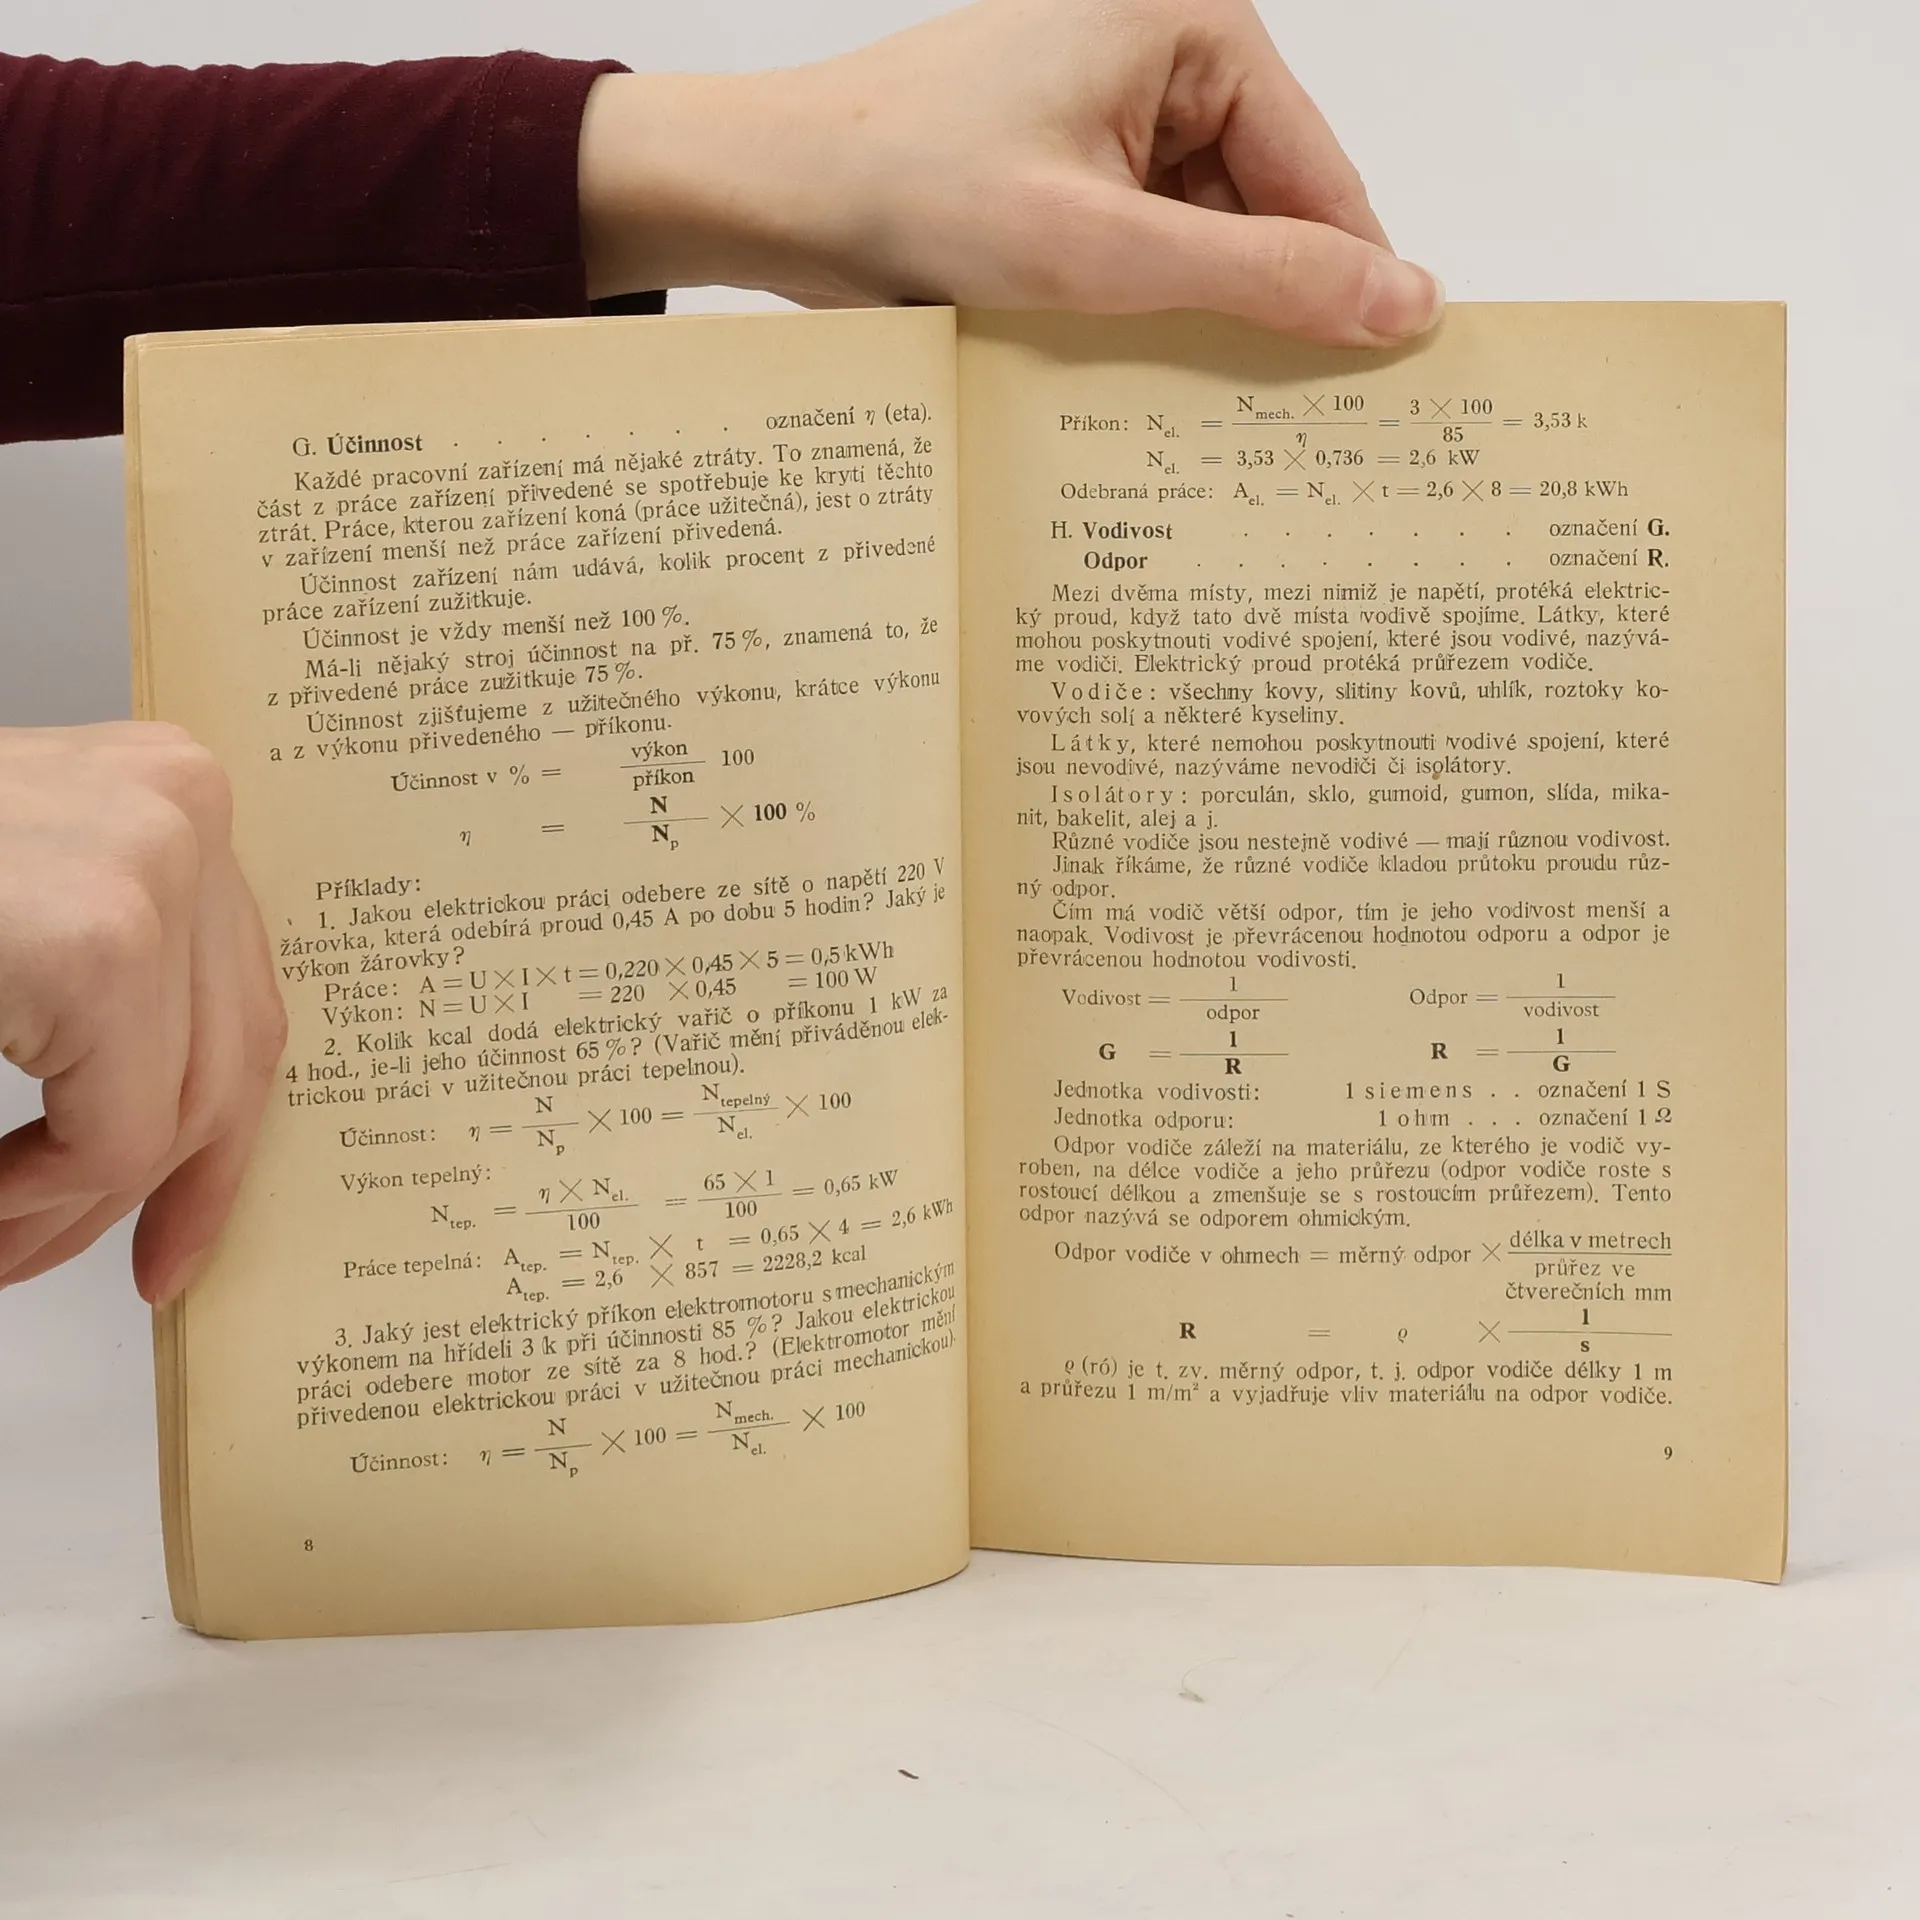 G. Účinnost . . . . . . . označení η (eta).
Každé pracovní zařízení má nějaké ztráty. To znamená, že
část z práce zařízení přivedené se spotřebuje ke krytí těchto
ztrát. Práce, kterou zařízení koná (práce užitečná), jest o ztráty
v zařízení menší než práce zařízení přivedená.
Účinnost zařízení nám udává, kolik procent z přivedené
práce zařízení zužitkuje.
Účinnost je vždy menší než 100 %.
Má-li nějaký stroj účinnost na př. 75 %, znamená to, že
z přivedené práce zužitkuje 75 %.
Účinnost zjišťujeme z užitečného výkonu, krátce výkonu
a z výkonu přivedeného — příkonu.
Účinnost v % = výkon / příkon 100
η = N / Np × 100 %
Příklady:
1. Jakou elektrickou práci odebere ze sítě o napětí 220 V
žárovka, která odebírá proud 0,45 A po dobu 5 hodin? Jaký je
výkon žárovky?
Práce: A = U × I × t = 0,220 × 0,45 × 5 = 0,5 kWh
Výkon: N = U × I = 220 × 0,45 = 100 W
2. Kolik kcal dodá elektrický vařič o příkonu 1 kW za
4 hod., je-li jeho účinnost 65 %? (Vařič mění přiváděnou elek-
trickou práci v užitečnou práci tepelnou).
Účinnost: η = N / Np × 100 = Ntepelný / Nel. × 100
Výkon tepelný:
Ntep. = η × Nel. / 100 = 65 × 1 / 100 = 0,65 kW
Práce tepelná: Atep. = Ntep. × t = 0,65 × 4 = 2,6 kWh
Atep. = 2,6 × 857 = 2228,2 kcal
3. Jaký jest elektrický příkon elektromotoru s mechanickým
výkonem na hřídeli 3 k při účinnosti 85 %? Jakou elektrickou
práci odebere motor ze sítě za 8 hod.? (Elektromotor mění
přivedenou elektrickou práci v užitečnou práci mechanickou).
Účinnost: η = N / Np × 100 = Nmech. / Nel. × 100
8
Příkon: Nel. = Nmech. × 100 / η = 3 × 100 / 85 = 3,53 k
Nel. = 3,53 × 0,736 = 2,6 kW
Odebraná práce: Ael. = Nel. × t = 2,6 × 8 = 20,8 kWh
H. Vodivost . . . . . . . označení G.
Odpor . . . . . . . . označení R.
Mezi dvěma místy, mezi nimiž je napětí, protéká elektric-
ký proud, když tato dvě místa vodivě spojíme. Látky, které
mohou poskytnouti vodivé spojení, které jsou vodivé, nazývá-
me vodiči. Elektrický proud protéká průřezem vodiče.
Vodiče: všechny kovy, slitiny kovů, uhlík, roztoky ko-
vových solí a některé kyseliny.
Látky, které nemohou poskytnouti vodivé spojení, které
jsou nevodivé, nazýváme nevodiči či isolátory.
Isolátory: porculán, sklo, gumoid, gumon, slída, mika-
nit, bakelit, alej a j.
Různé vodiče jsou nestejně vodivé — mají různou vodivost.
Jinak říkáme, že různé vodiče kladou průtoku proudu růz-
ný odpor.
Čím má vodič větší odpor, tím je jeho vodivost menší a
naopak. Vodivost je převrácenou hodnotou odporu a odpor je
převrácenou hodnotou vodivosti.
Vodivost = 1 / odpor Odpor = 1 / vodivost
G = 1 / R R = 1 / G
Jednotka vodivosti: 1 siemens . . označení 1 S
Jednotka odporu: 1 ohm . . . označení 1 Ω
Odpor vodiče záleží na materiálu, ze kterého je vodič vy-
roben, na délce vodiče a jeho průřezu (odpor vodiče roste s
rostoucí délkou a zmenšuje se s rostoucím průřezem). Tento
odpor nazývá se odporem ohmickým.
Odpor vodiče v ohmech = měrný odpor × délka v metrech / průřez ve
čtverečních mm
R = ϱ × l / s
ϱ (ró) je t. zv. měrný odpor, t. j. odpor vodiče délky 1 m
a průřezu 1 m/m² a vyjadřuje vliv materiálu na odpor vodiče.
9